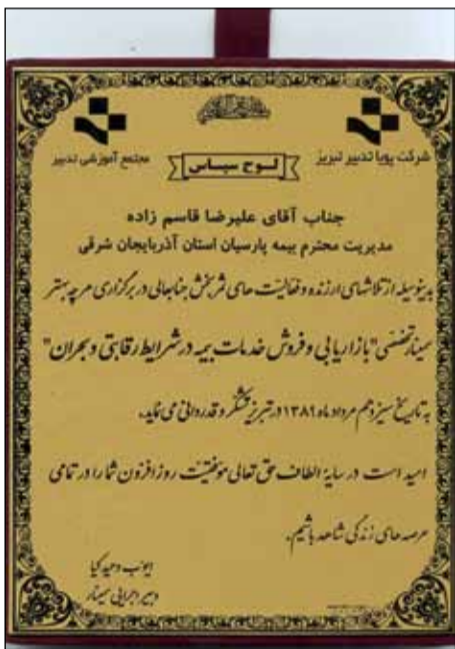 شرکت پویا تدبیر تبریز
مجتمع آموزشی تدبیر
لوح سپاس
جناب آقای علیرضا قاسم زاده
مدیریت محترم بیمه پارسیان استان آذربایجان شرقی
بدینوسیله از تلاشهای ارزنده و فعالیت های ثمربخش جنابعالی در برگزاری هرچه بهتر
سمینار تخصصی "بازاریابی و فروش خدمات بیمه در شرایط رقابتی و بحران"
به تاریخ سیزدهم مرداد ماه ۱۳۸۹ در تبریز تشکر و قدردانی می نماید.
امید است در سایه الطاف حق تعالی موفقیت روزافزون شما را در تمامی
عرصه های زندگی شاهد باشیم.
ایوب وحید کیا
دبیر اجرایی سمینار